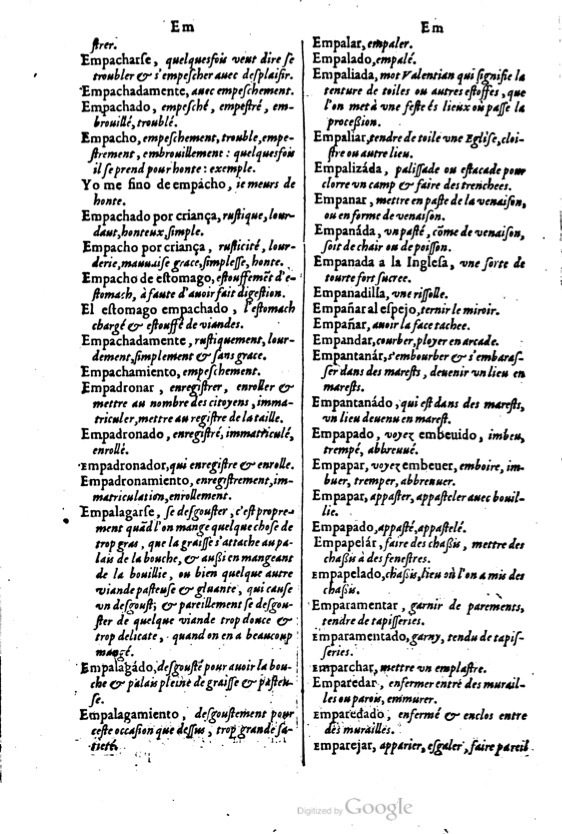 Em
ſtrer.
Empacharſe, quelquesfois veut dire ſe
troubler & s'empeſcher auec deſplaiſir.
Empachadamente, auec empeſchement.
Empachado, empeſché, empeſtré, em-
brouillé, troublé.
Empacho, empeſchement, trouble, empe-
ſtrement, embrouillement : quelquesfois
il ſe prend pour honte : exemple.
Yo me fino de empácho, ie meurs de
honte.
Empachado por criança, ruſtique, lour-
daut, honteux, ſimple.
Empacho por criança, ruſticité, lour-
derie, mauuaiſe grace, ſimpleſſe, honte.
Empacho de eſtomago, eſtouffemẽt d'e-
ſtomach, à faute d'auoir fait digeſtion.
El eſtomago empachado, l'eſtomach
chargé & eſtouffé de viandes.
Empachadamente, ruſtiquement, lour-
dement, ſimplement & ſans grace.
Empachamiento, empeſchement.
Empadronar, enregiſtrer, enroller &
mettre au nombre des citoyens, imma-
triculer, mettre au regiſtre de la taille.
Empadronado, enregiſtré, immatriculé,
enrollé.
Empadronador, qui enregiſtre & enrolle.
Empadronamiento, enregiſtrement, im-
matriculation, enrollement.
Empalagarſe, ſe deſgouſter, c'eſt propre-
ment quãd l'on mange quelque choſe de
trop gras, que la graiſſe s'attache au pa-
lais de la bouche, & außi en mangeant
de la bouillie, ou bien quelque autre
viande paſteuſe & gluante, qui cauſe
vn deſgouſt; & pareillement ſe deſgou-
ſter de quelque viande trop douce &
trop delicate, quand on en a beaucoup
mangé.
Empalagádo, deſgouſté pour auoir la bou-
che & palais pleine de graiſſe & paſteu-
ſe.
Empalagamiento, deſgouſtement pour
ceſte occaſion que deſſus, trop grande ſa-
tieté.
Em
Empalar, empaler.
Empalado, empalé.
Empaliada, mot Valentian qui ſignifie la
tenture de toiles ou autres eſtoffes, que
l'on met à vne feſte és lieux où paſſe la
proceßion.
Empaliar, tendre de toile vne Egliſe, cloi-
ſtre ou autre lieu.
Empalizáda, paliſſade ou eſtacade pour
clorre vn camp & faire des trenchees.
Empanar, mettre en paſte de la venaiſon,
ou en forme de venaiſon.
Empanáda, vn paſté, cõme de venaiſon,
ſoit de chair ou de poiſſon.
Empanada a la Ingleſa, vne ſorte de
tourte fort ſucree.
Empanadilla, vne riſſolle.
Empañar al eſpejo, ternir le miroir.
Empañar, auoir la face tachee.
Empandar, courber, ployer en arcade.
Empantanár, s'embourber & s'embaraſ-
ſer dans des mareſts, deuenir vn lieu en
mareſts.
Empantanádo, qui eſt dans des mareſts,
vn lieu deuenu en mareſt.
Empapado, voyez embeuido, imbeu,
trempé, abbreuué.
Empapar, voyez embeuer, emboire, im-
buer, tremper, abbreuuer.
Empapar, appaſter, appaſteler auec bouil-
lie.
Empapado, appaſté, appaſtelé.
Empapelár, faire des chaßis, mettre des
chaßis à des feneſtres.
Empapelado, chaßis, lieu où l'on a mis des
chaßis.
Emparamentar, garnir de parements,
tendre de tapiſſeries.
Emparamentado, garny, tendu de tapiſ-
ſeries.
Emparchar, mettre vn emplaſtre.
Emparedar, enfermer entre des murail-
les ou parois, emmurer.
Emparedado, enfermé & enclos entre
des murailles.
Emparejar, apparier, eſgaler, faire pareil
Digitized by Google